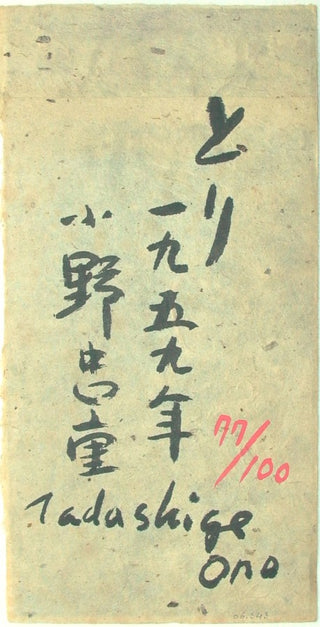 とり
一九五九年
小野忠重
77/100
Tadashige
Ono
06.343